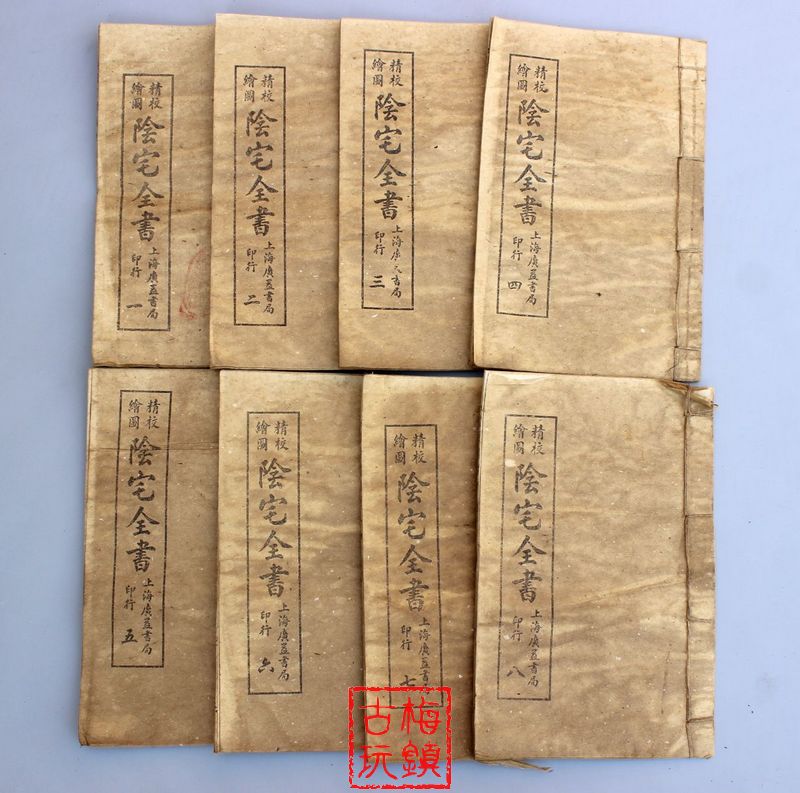 精校
繪圖
陰宅全書
上海廣益書局
印行
一
精校
繪圖
陰宅全書
上海廣益書局
印行
二
精校
繪圖
陰宅全書
上海廣益書局
印行
三
精校
繪圖
陰宅全書
上海廣益書局
印行
四
精校
繪圖
陰宅全書
上海廣益書局
印行
五
精校
繪圖
陰宅全書
上海廣益書局
印行
六
精校
繪圖
陰宅全書
上海廣益書局
印行
七
精校
繪圖
陰宅全書
上海廣益書局
印行
八
梅鎮
古玩